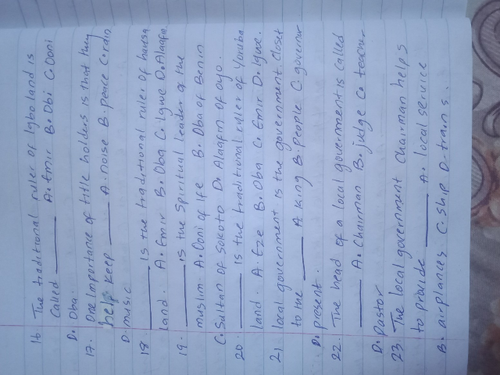 16 The traditional ruler of Igbo land is
called ______ A. Emir B. Obi C. Ooni
D. Oba.
17. One importance of title holders is that they
help keep ______ A. noise B. peace C. rain
D music
18 ______ is the traditional ruler of hausa
land. A. Emir B. Oba C. Igwe D. Alaafin
19. ______ is the Spiritual leader of the
muslim A. Ooni of Ife B. Oba of Benin
C. Sultan of Sokoto D. Alaafin of oyo.
20 ______ is the traditional ruler of Yoruba
land. A Eze B. Oba C. Emir D. Igwe.
21 local government is the government closet
to the ______ A King B People C. governor
D. present.
22 The head of a local government is called
______ A. Chairman B. judge C. teacher
D. Pastor
23 The local government Chairman helps
to provide ______ A. local service
B. airplances C. Ship D. trains.